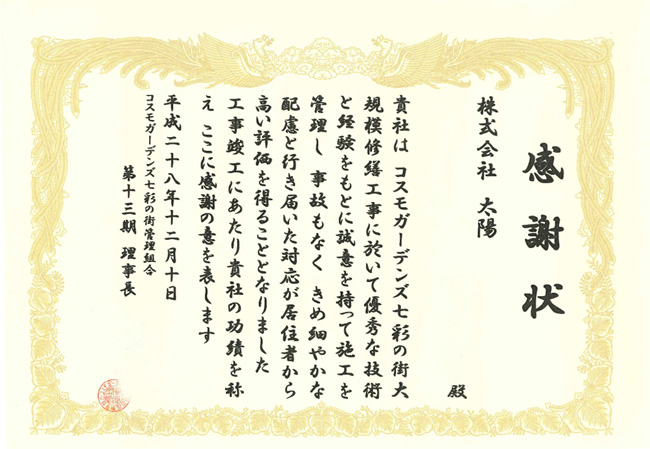 感謝状
株式会社 太陽
殿
貴社は コスモガーデンズ七彩の街大
規模修繕工事に於いて優秀な技術
と経験をもとに誠意を持って施工を
管理し 事故もなく きめ細やかな
配慮と行き届いた対応が居住者から
高い評価を得ることとなりました
工事竣工にあたり貴社の功績を称
え ここに感謝の意を表します
平成二十八年十二月十日
コスモガーデンズ七彩の街管理組合
第十三期 理事長